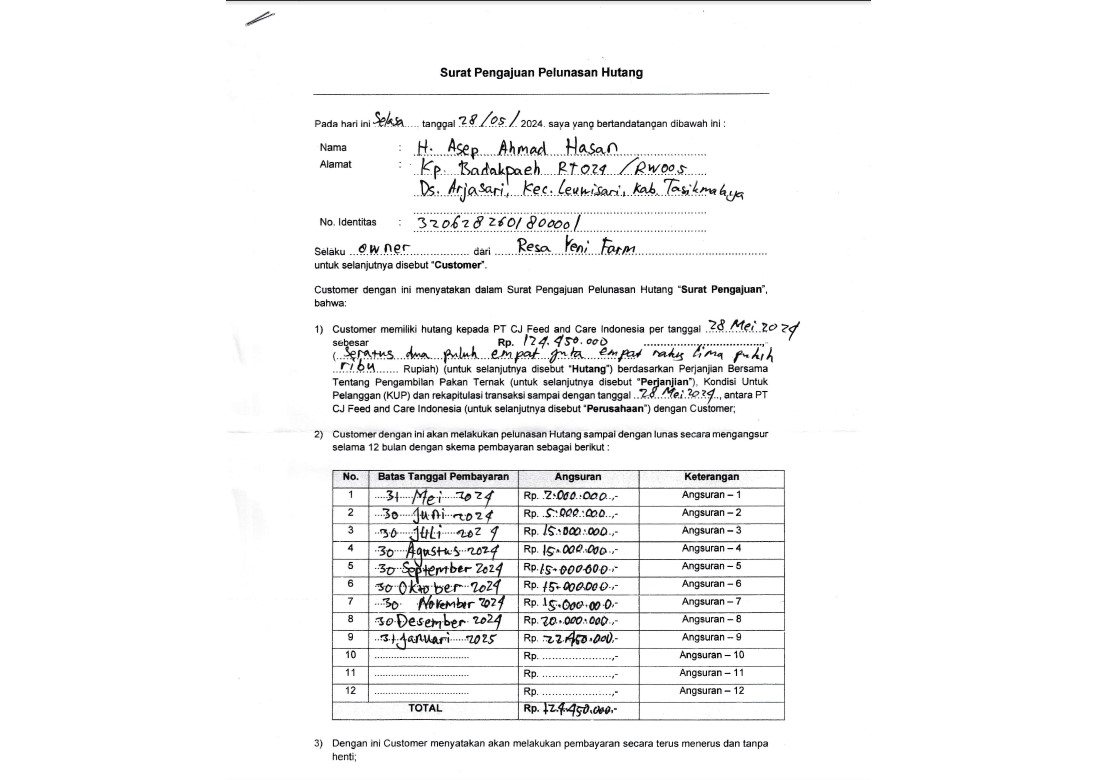 Surat Pengajuan Pelunasan Hutang
Pada hari ini Selasa..... tanggal 28/05/ 2024. saya yang bertandatangan dibawah ini :
Nama : H. Asep Ahmad Hasan
Alamat : Kp. Badakpaeh RT024 /RW005
Ds. Arjasari, Kec. Leuwisari, Kab. Tasikmalaya
No. Identitas : 3206282601800001
Selaku owner dari Resa Yeni Farm
untuk selanjutnya disebut "Customer".
Customer dengan ini menyatakan dalam Surat Pengajuan Pelunasan Hutang "Surat Pengajuan",
bahwa:
1) Customer memiliki hutang kepada PT CJ Feed and Care Indonesia per tanggal 28 Mei 2024
sebesar Rp. 124.450.000 ,-
(Seratus dua puluh empat juta empat ratus lima puluh
ribu Rupiah) (untuk selanjutnya disebut "Hutang") berdasarkan Perjanjian Bersama
Tentang Pengambilan Pakan Ternak (untuk selanjutnya disebut "Perjanjian"), Kondisi Untuk
Pelanggan (KUP) dan rekapitulasi transaksi sampai dengan tanggal 28 Mei 2024, antara PT
CJ Feed and Care Indonesia (untuk selanjutnya disebut "Perusahaan") dengan Customer;
2) Customer dengan ini akan melakukan pelunasan Hutang sampai dengan lunas secara mengangsur
selama 12 bulan dengan skema pembayaran sebagai berikut :
No. Batas Tanggal Pembayaran Angsuran Keterangan
1 31 Mei 2024 Rp. 2.000.000.,- Angsuran – 1
2 30 Juni 2024 Rp. 5.000.000.,- Angsuran – 2
3 30 Juli 2024 Rp. 15.000.000.,- Angsuran – 3
4 30 Agustus 2024 Rp. 15.000.000.,- Angsuran – 4
5 30 September 2024 Rp. 15.000.000.,- Angsuran – 5
6 30 Oktober 2024 Rp. 15.000.000.,- Angsuran – 6
7 30 November 2024 Rp. 15.000.000,- Angsuran – 7
8 30 Desember 2024 Rp. 20.000.000.,- Angsuran – 8
9 31 Januari 2025 Rp. 22.450.000,- Angsuran – 9
10 ................................ Rp. .....................,- Angsuran – 10
11 ................................ Rp. .....................,- Angsuran – 11
12 ................................ Rp. .....................,- Angsuran – 12
TOTAL Rp. 124.450.000.-
3) Dengan ini Customer menyatakan akan melakukan pembayaran secara terus menerus dan tanpa
henti;